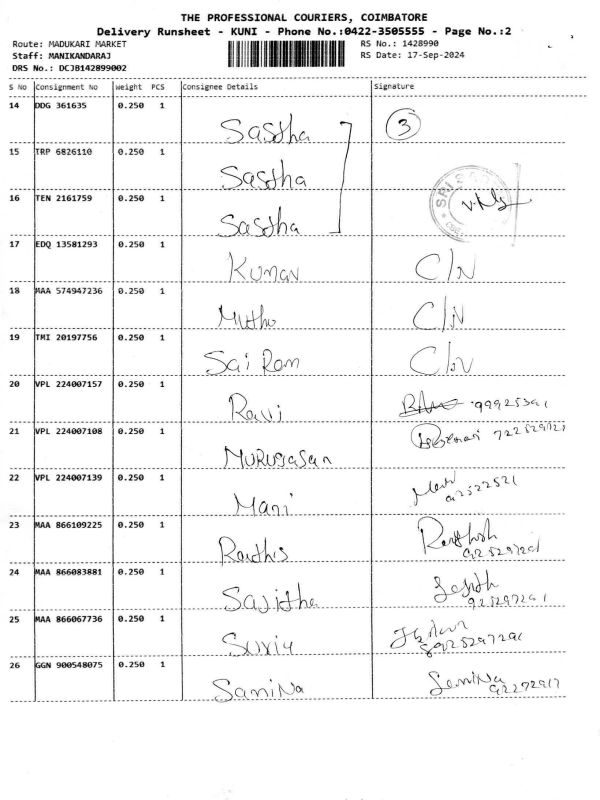 THE PROFESSIONAL COURIERS, COIMBATORE
Delivery Runsheet - KUNI - Phone No.:0422-3505555 - Page No.:2
Route: MADUKARI MARKET RS No.: 1428990
Staff: MANIKANDARAJ RS Date: 17-Sep-2024
DRS No.: DCJB142899002
S No Consignment No Weight PCS Consignee Details Signature
14 DDG 361635 0.250 1 Sastha 3
15 TRP 6826110 0.250 1 Sastha
16 TEN 2161759 0.250 1 Sastha
17 EDQ 13581293 0.250 1 Kumar C/N
18 MAA 574947236 0.250 1 Muthu C/N
19 TMI 20197756 0.250 1 Sai Ram C/N
20 VPL 224007157 0.250 1 Ravi
21 VPL 224007108 0.250 1 Murugasan
22 VPL 224007139 0.250 1 Mani
23 MAA 866109225 0.250 1
24 MAA 866083881 0.250 1 Sajitha 925297291
25 MAA 866067736 0.250 1
26 GGN 900548075 0.250 1 SamiNa SamiNa